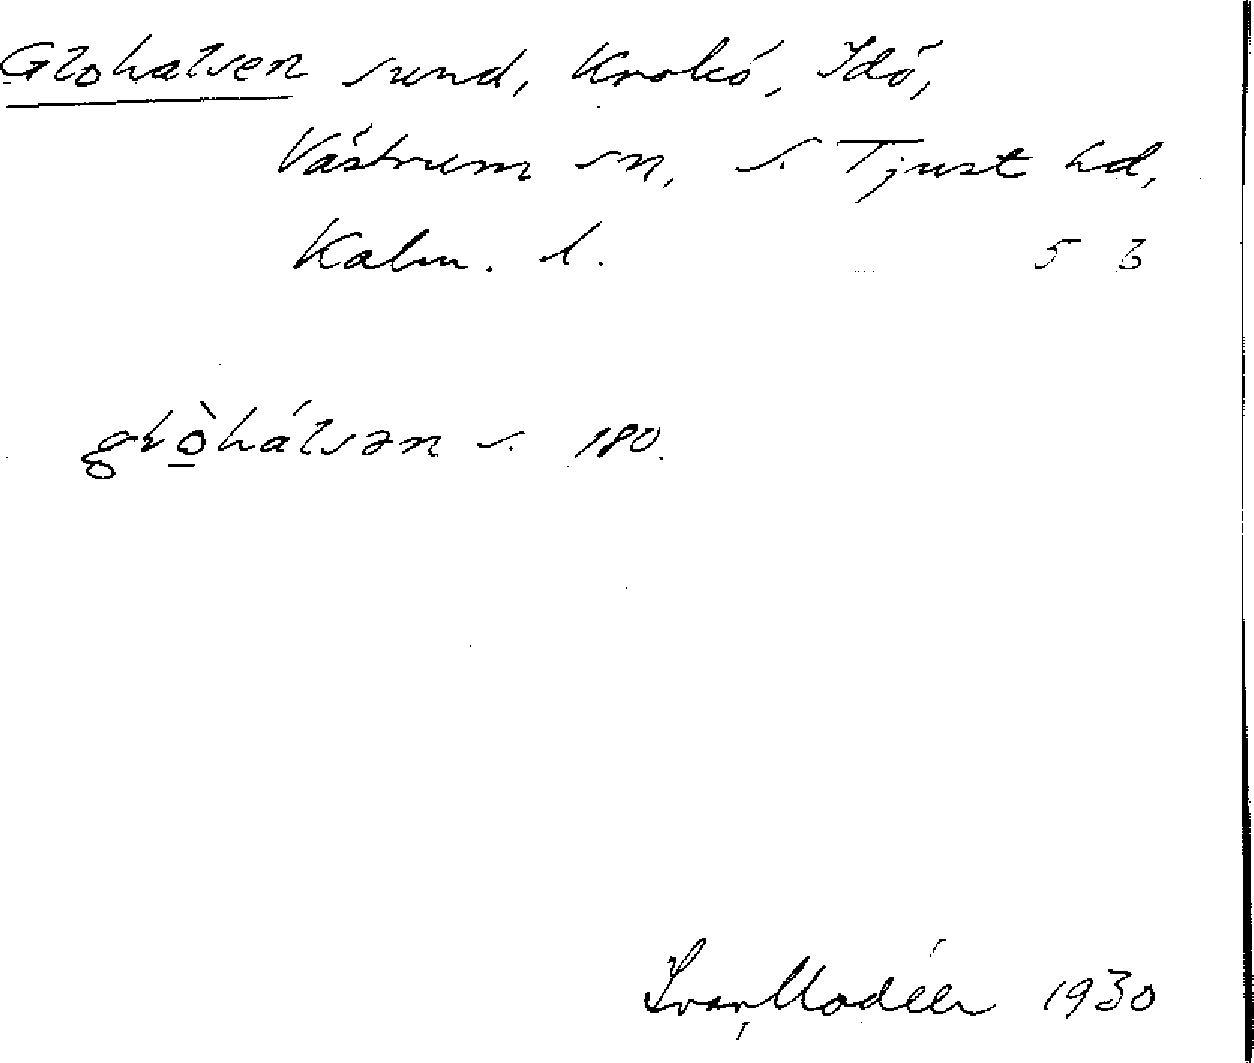 Glohalsen sund, Krokö, Idö,
Västrum sn, S. Tjust hd,
Kalm. l. 5 b
glò̱hálsən s. 180.
Ivar Modéer 1930